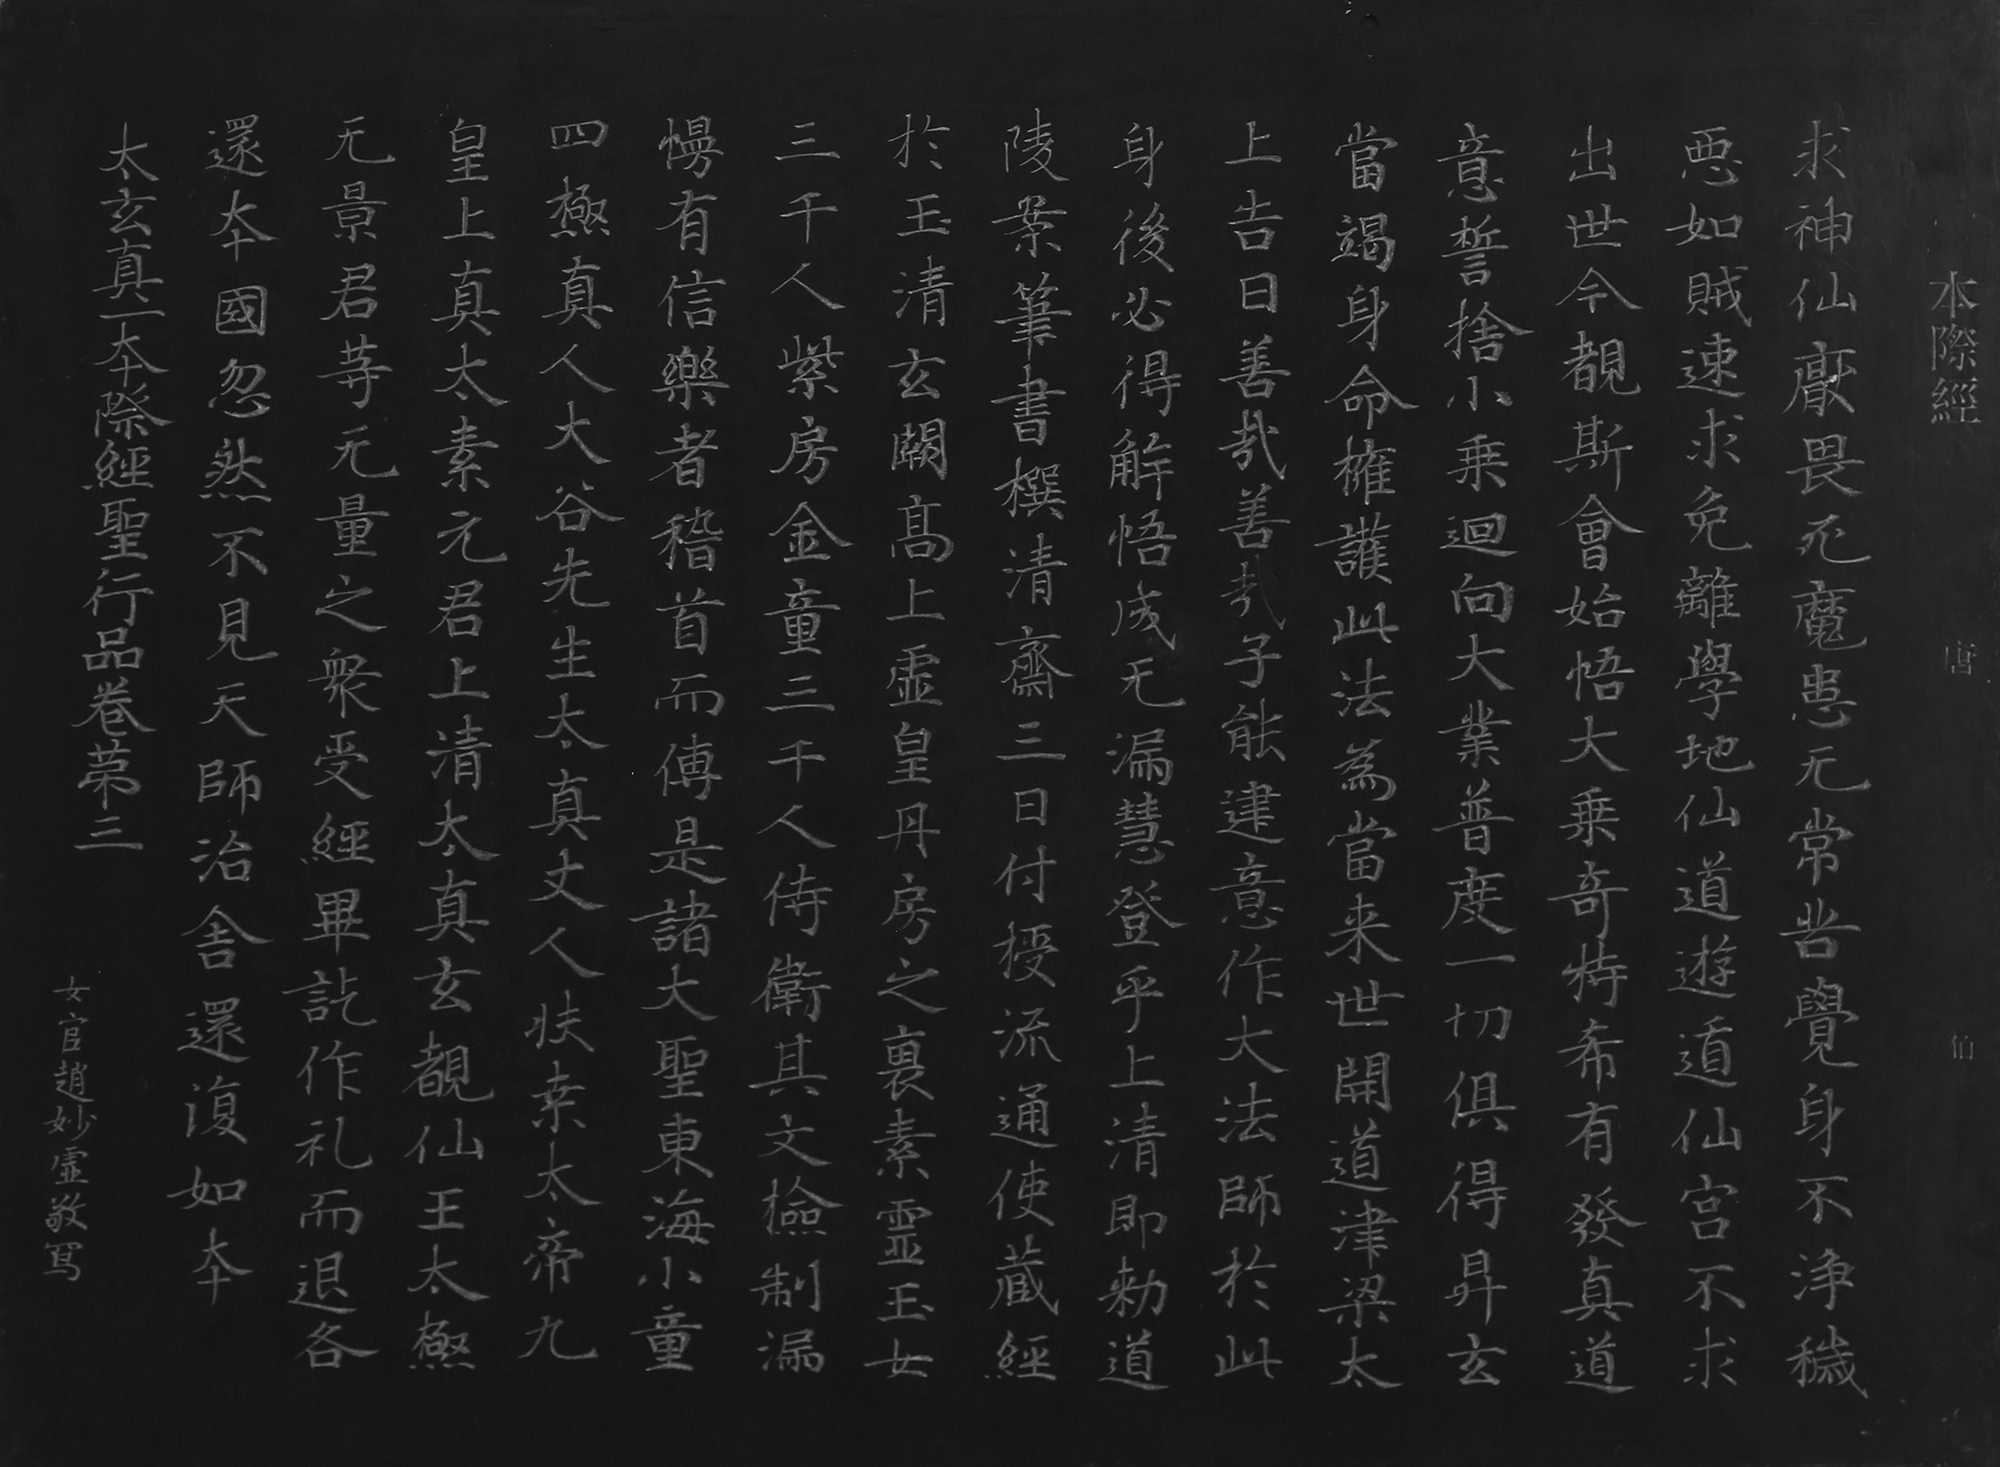 本際經 唐 伯
求神仙厭畏死魔患无常苦覺身不淨穢
惡如賊速求免離學地仙道遊遁仙宮不求
出世今覩斯會始悟大乘奇特希有發真道
意誓捨小乘迴向大業普度一切俱得昇玄
當竭身命擁護此法為當来世開道津梁太
上告曰善哉善哉子能建意作大法師於此
身後必得解悟成无漏慧登乎上清即勑道
陵案筆書撰清齋三日付授流通使蔵經
於玉清玄闕高上虛皇丹房之裏素靈玉女
三千人紫房金童三千人侍衛其文檢制漏
慢有信樂者稽首而傳是諸大聖東海小童
四極真人大谷先生太真丈人扶桒太帝九
皇上真太素元君上清太真玄覩仙王太極
无景君等无量之衆受經畢訖作礼而退各
還本國忽然不見天師治舍還復如本
太玄真一本際經聖行品卷第三
女官趙妙虛敬寫